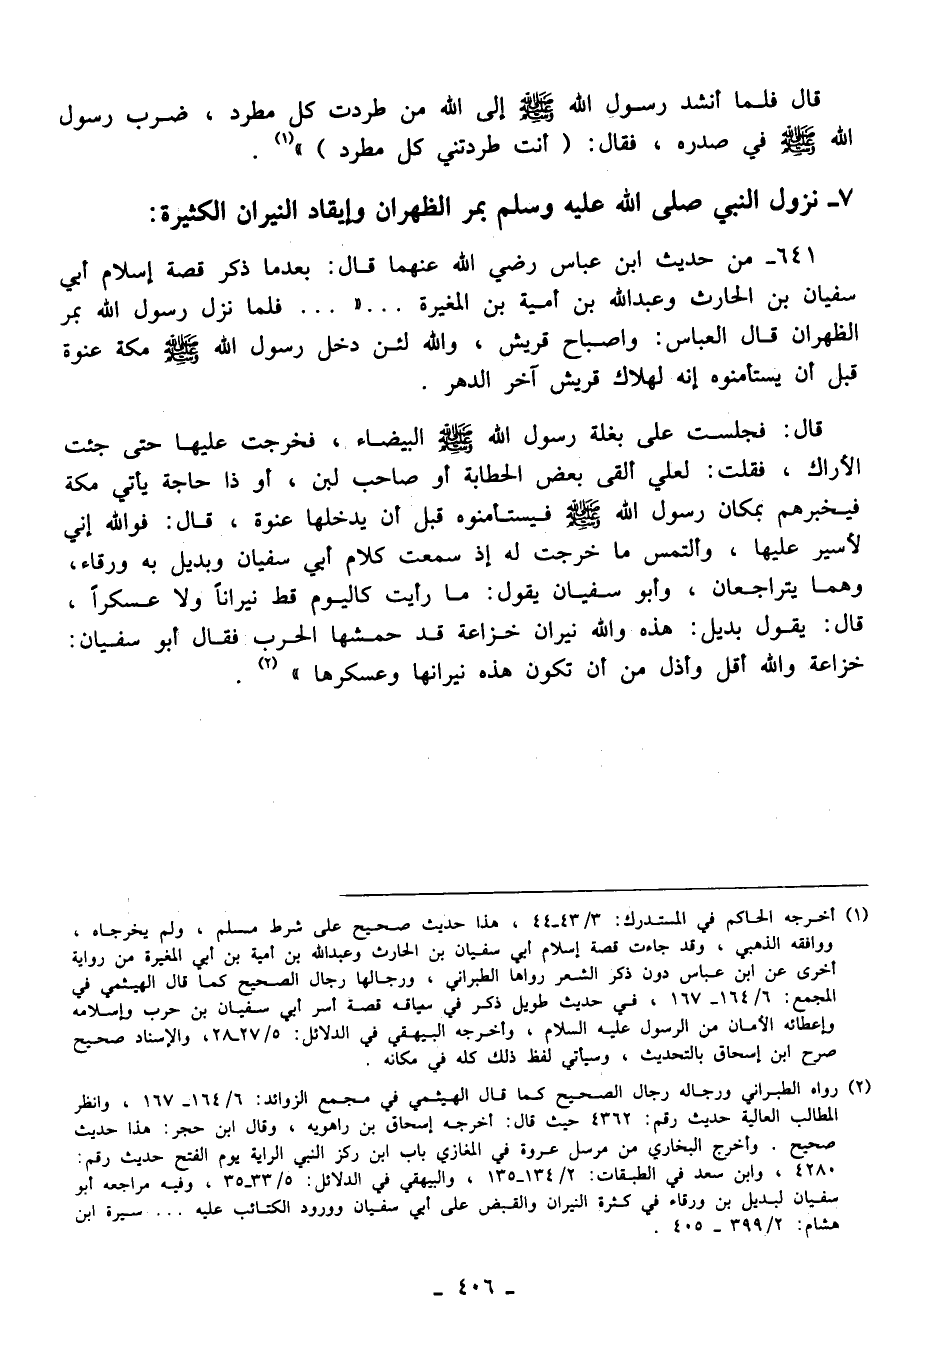 قال فلما أنشد رسول الله ﷺ إلى الله من طردت كل مطرد ، ضرب رسول
الله ﷺ في صدره ، فقال: ( أنت طردتني كل مطرد ) »(١) .
٧ـ نزول النبي صلى الله عليه وسلم بمر الظهران وإيقاد النيران الكثيرة:
٦٤١ـ من حديث ابن عباس رضي الله عنهما قال: بعدما ذكر قصة إسلام أبي
سفيان بن الحارث وعبدالله بن أمية بن المغيرة ...« ... فلما نزل رسول الله بمر
الظهران قال العباس: واصباح قريش ، والله لئن دخل رسول الله ﷺ مكة عنوة
قبل أن يستأمنوه إنه لهلاك قريش آخر الدهر .
قال: فجلست على بغلة رسول الله ﷺ البيضاء ، فخرجت عليها حتى جئت
الأراك ، فقلت: لعلي ألقى بعض الحطابة أو صاحب لبن ، أو ذا حاجة يأتي مكة
فيخبرهم بمكان رسول الله ﷺ فيستأمنوه قبل أن يدخلها عنوة ، قال: فوالله إني
لأسير عليها ، وألتمس ما خرجت له إذ سمعت كلام أبي سفيان وبديل به ورقاء،
وهما يتراجعان ، وأبو سفيان يقول: ما رأيت كاليوم قط نيراناً ولا عسكراً ،
قال: يقول بديل: هذه والله نيران خزاعة قد حمشها الحرب فقال أبو سفيان:
خزاعة والله أقل وأذل من أن تكون هذه نيرانها وعسكرها » (٢) .
(١) أخرجه الحاكم في المستدرك: ٤٣/٣ـ٤٤ ، هذا حديث صحيح على شرط مسلم ، ولم يخرجاه ،
ووافقه الذهبي ، وقد جاءت قصة إسلام أبي سفيان بن الحارث وعبدالله بن أمية بن أبي المغيرة من رواية
أخرى عن ابن عباس دون ذكر الشعر رواها الطبراني ، ورجالها رجال الصحيح كما قال الهيثمي في
المجمع: ١٦٤/٦ـ ١٦٧ ، في حديث طويل ذكر في سياقه قصة أسر أبي سفيان بن حرب وإسلامه
وإعطائه الأمان من الرسول عليه السلام ، وأخرجه البيهقي في الدلائل: ٢٧/٥ـ٢٨، والإسناد صحيح
صرح ابن إسحاق بالتحديث ، وسيأتي لفظ ذلك كله في مكانه .
(٢) رواه الطبراني ورجاله رجال الصحيح كما قال الهيثمي في مجمع الزوائد: ١٦٤/٦ـ ١٦٧ ، وانظر
المطالب العالية حديث رقم: ٤٣٦٢ حيث قال: أخرجه إسحاق بن راهويه ، وقال ابن حجر: هذا حديث
صحيح . وأخرج البخاري من مرسل عروة في المغازي باب ابن ركز النبي الراية يوم الفتح حديث رقم:
٤٢٨٠ ، وابن سعد في الطبقات: ١٣٤/٢ـ١٣٥ ، والبيهقي في الدلائل: ٣٣/٥ـ٣٥ ، وفيه مراجعه أبو
سفيان لبديل بن ورقاء في كثرة النيران والقبض على أبي سفيان وورود الكتائب عليه ... سيرة ابن
هشام: ٣٩٩/٢ ـ ٤٠٥ .
ـ ٤٠٦ ـ